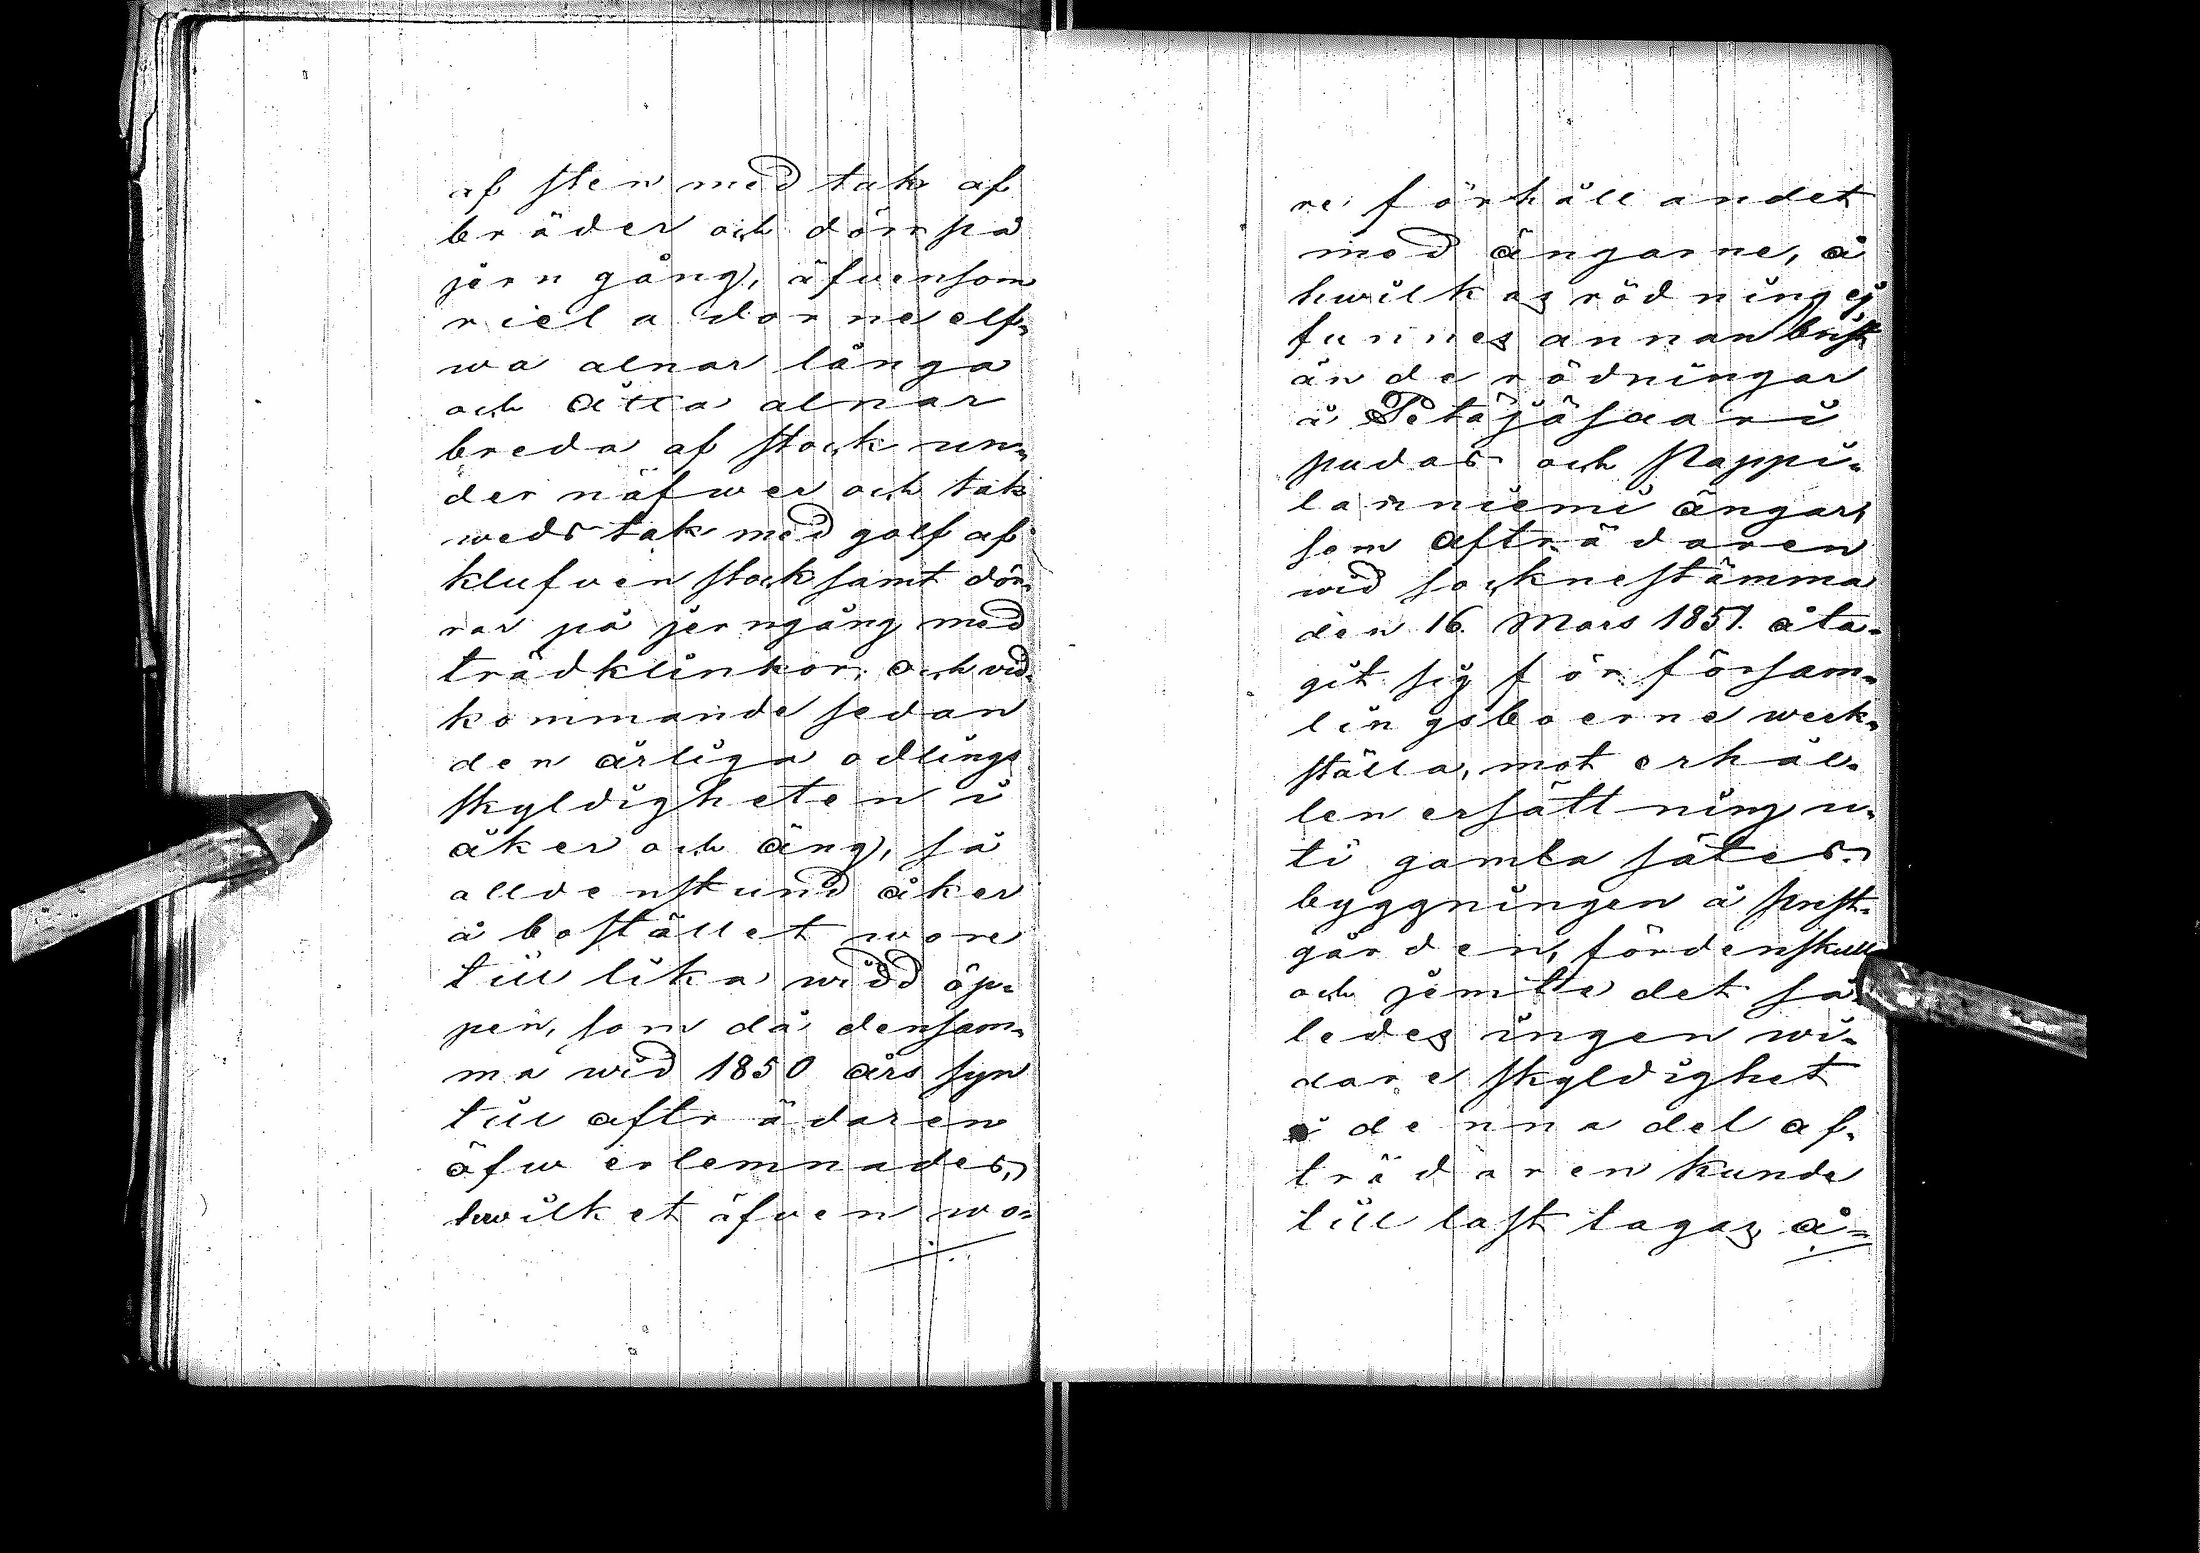 af sten med tak af
bräder och dörr på
jern gång, äfvensom
riel adorne elf-
wa alnar långa
och åtta alnar
breda af stock un-
der näfwer och tak
weds tak med golf af
klufven stock samt dör-
rar på jerngång med
trädklinkor; och vid-
kommande sedan
den årliga odlings
skyldigheten i
åker och äng, så
alldenstund åker
å bostället wore
till lika widd öp-
pen, som då densam-
ma wid 1850 års syn
till afträdaren
öfwerlemnades,
hwilket äfven wo-
re förhållandet
med ängarne, å
hwilkas rödning ej
funnes annan brist
än de rödningar
å Petäjäsaari
pudas och Nappi-
lanniemi ängar,
som afträdaren
wid socknestämma
den 16. Mars 1851. åta-
git sig för försam-
lingsboerne werk-
ställa, mot erhål-
len ersättning u-
ti gamla sätes-
byggningen å prest-
gården, fördenskull
och jemte det så-
ledes ingen wi-
dare skyldighet
i denna del af-
trädaren kunde
till last lagas å-